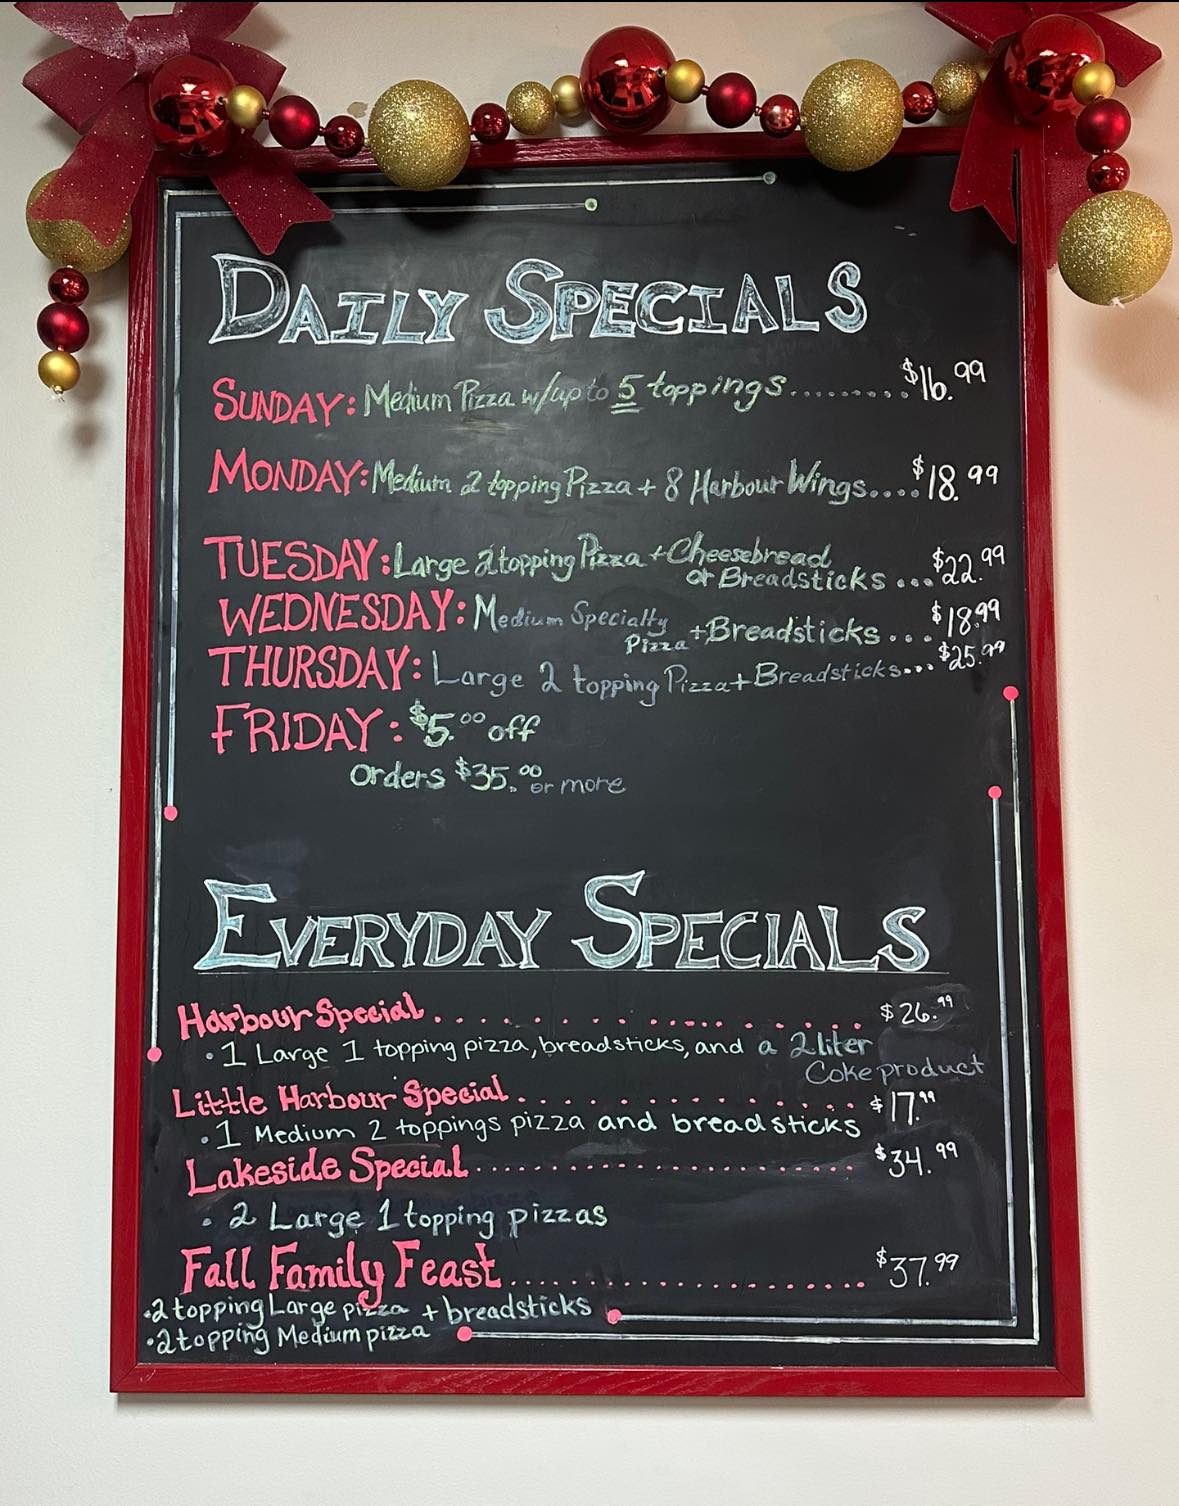 DAILY SPECIALS
SUNDAY: Medium Pizza w/up to 5 toppings......... $16.99
MONDAY: Medium 2 topping Pizza + 8 Harbour Wings.... $18.99
TUESDAY: Large 2 topping Pizza + Cheesebread
or Breadsticks ... $22.99
WEDNESDAY: Medium Specialty
Pizza + Breadsticks ... $18.99
THURSDAY: Large 2 topping Pizza + Breadsticks... $25.99
FRIDAY: $5.00 off
Orders $35.00 or more
EVERYDAY SPECIALS
Harbour Special.................. $26.99
• 1 Large 1 topping pizza, breadsticks, and a 2 liter
Coke product
Little Harbour Special............... $17.99
• 1 Medium 2 toppings pizza and breadsticks
Lakeside Special...................... $34.99
• 2 Large 1 topping pizzas
Fall Family Feast...................... $37.99
• 2 topping Large pizza + breadsticks
• 2 topping Medium pizza